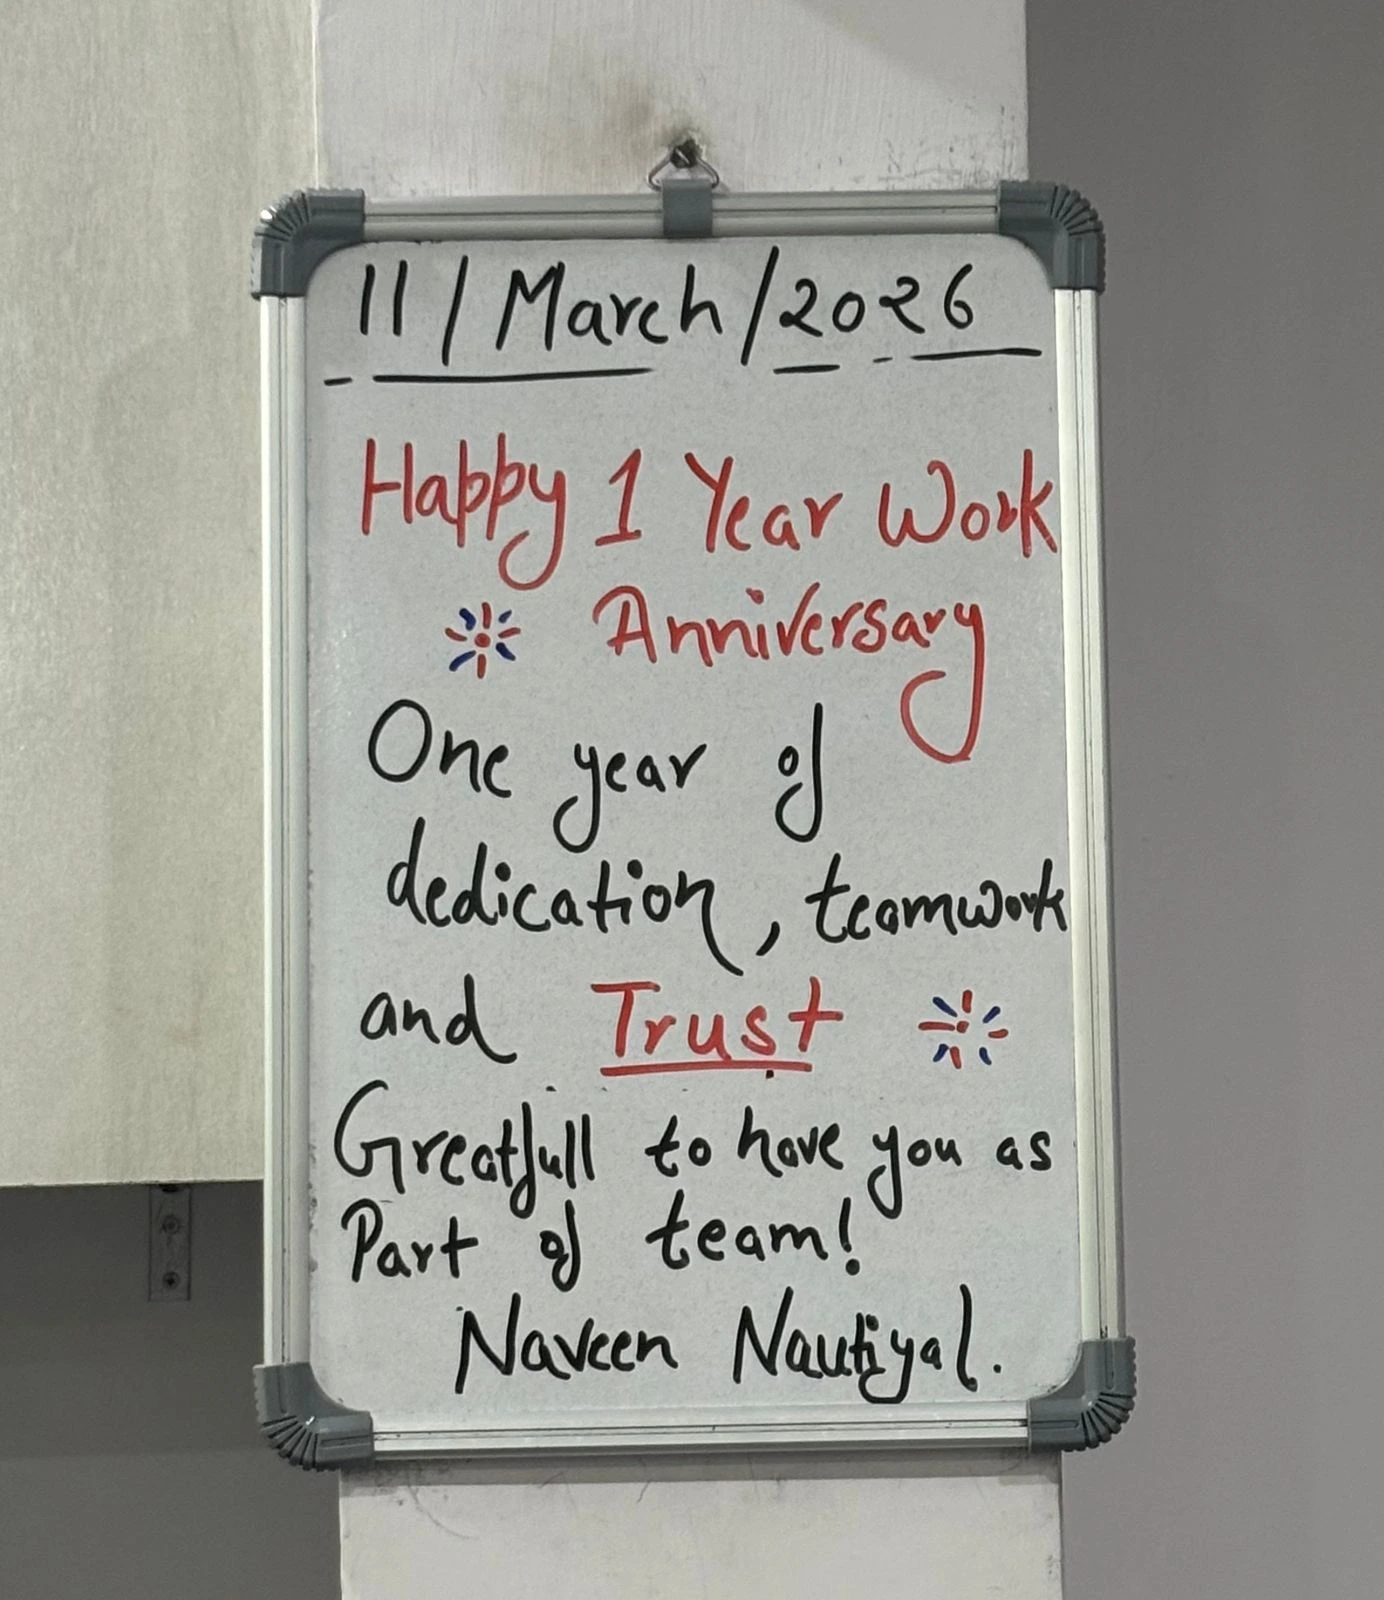 11/March/2026
Happy 1 Year Work
Anniversary
One year of
dedication, teamwork
and Trust
Greatfull to have you as
Part of team!
Naveen Nautiyal.